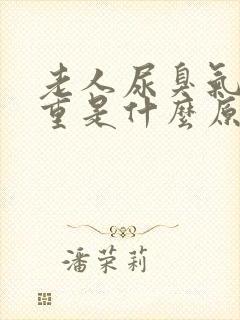 老人尿臭氣
重是什麼原
潘荣莉